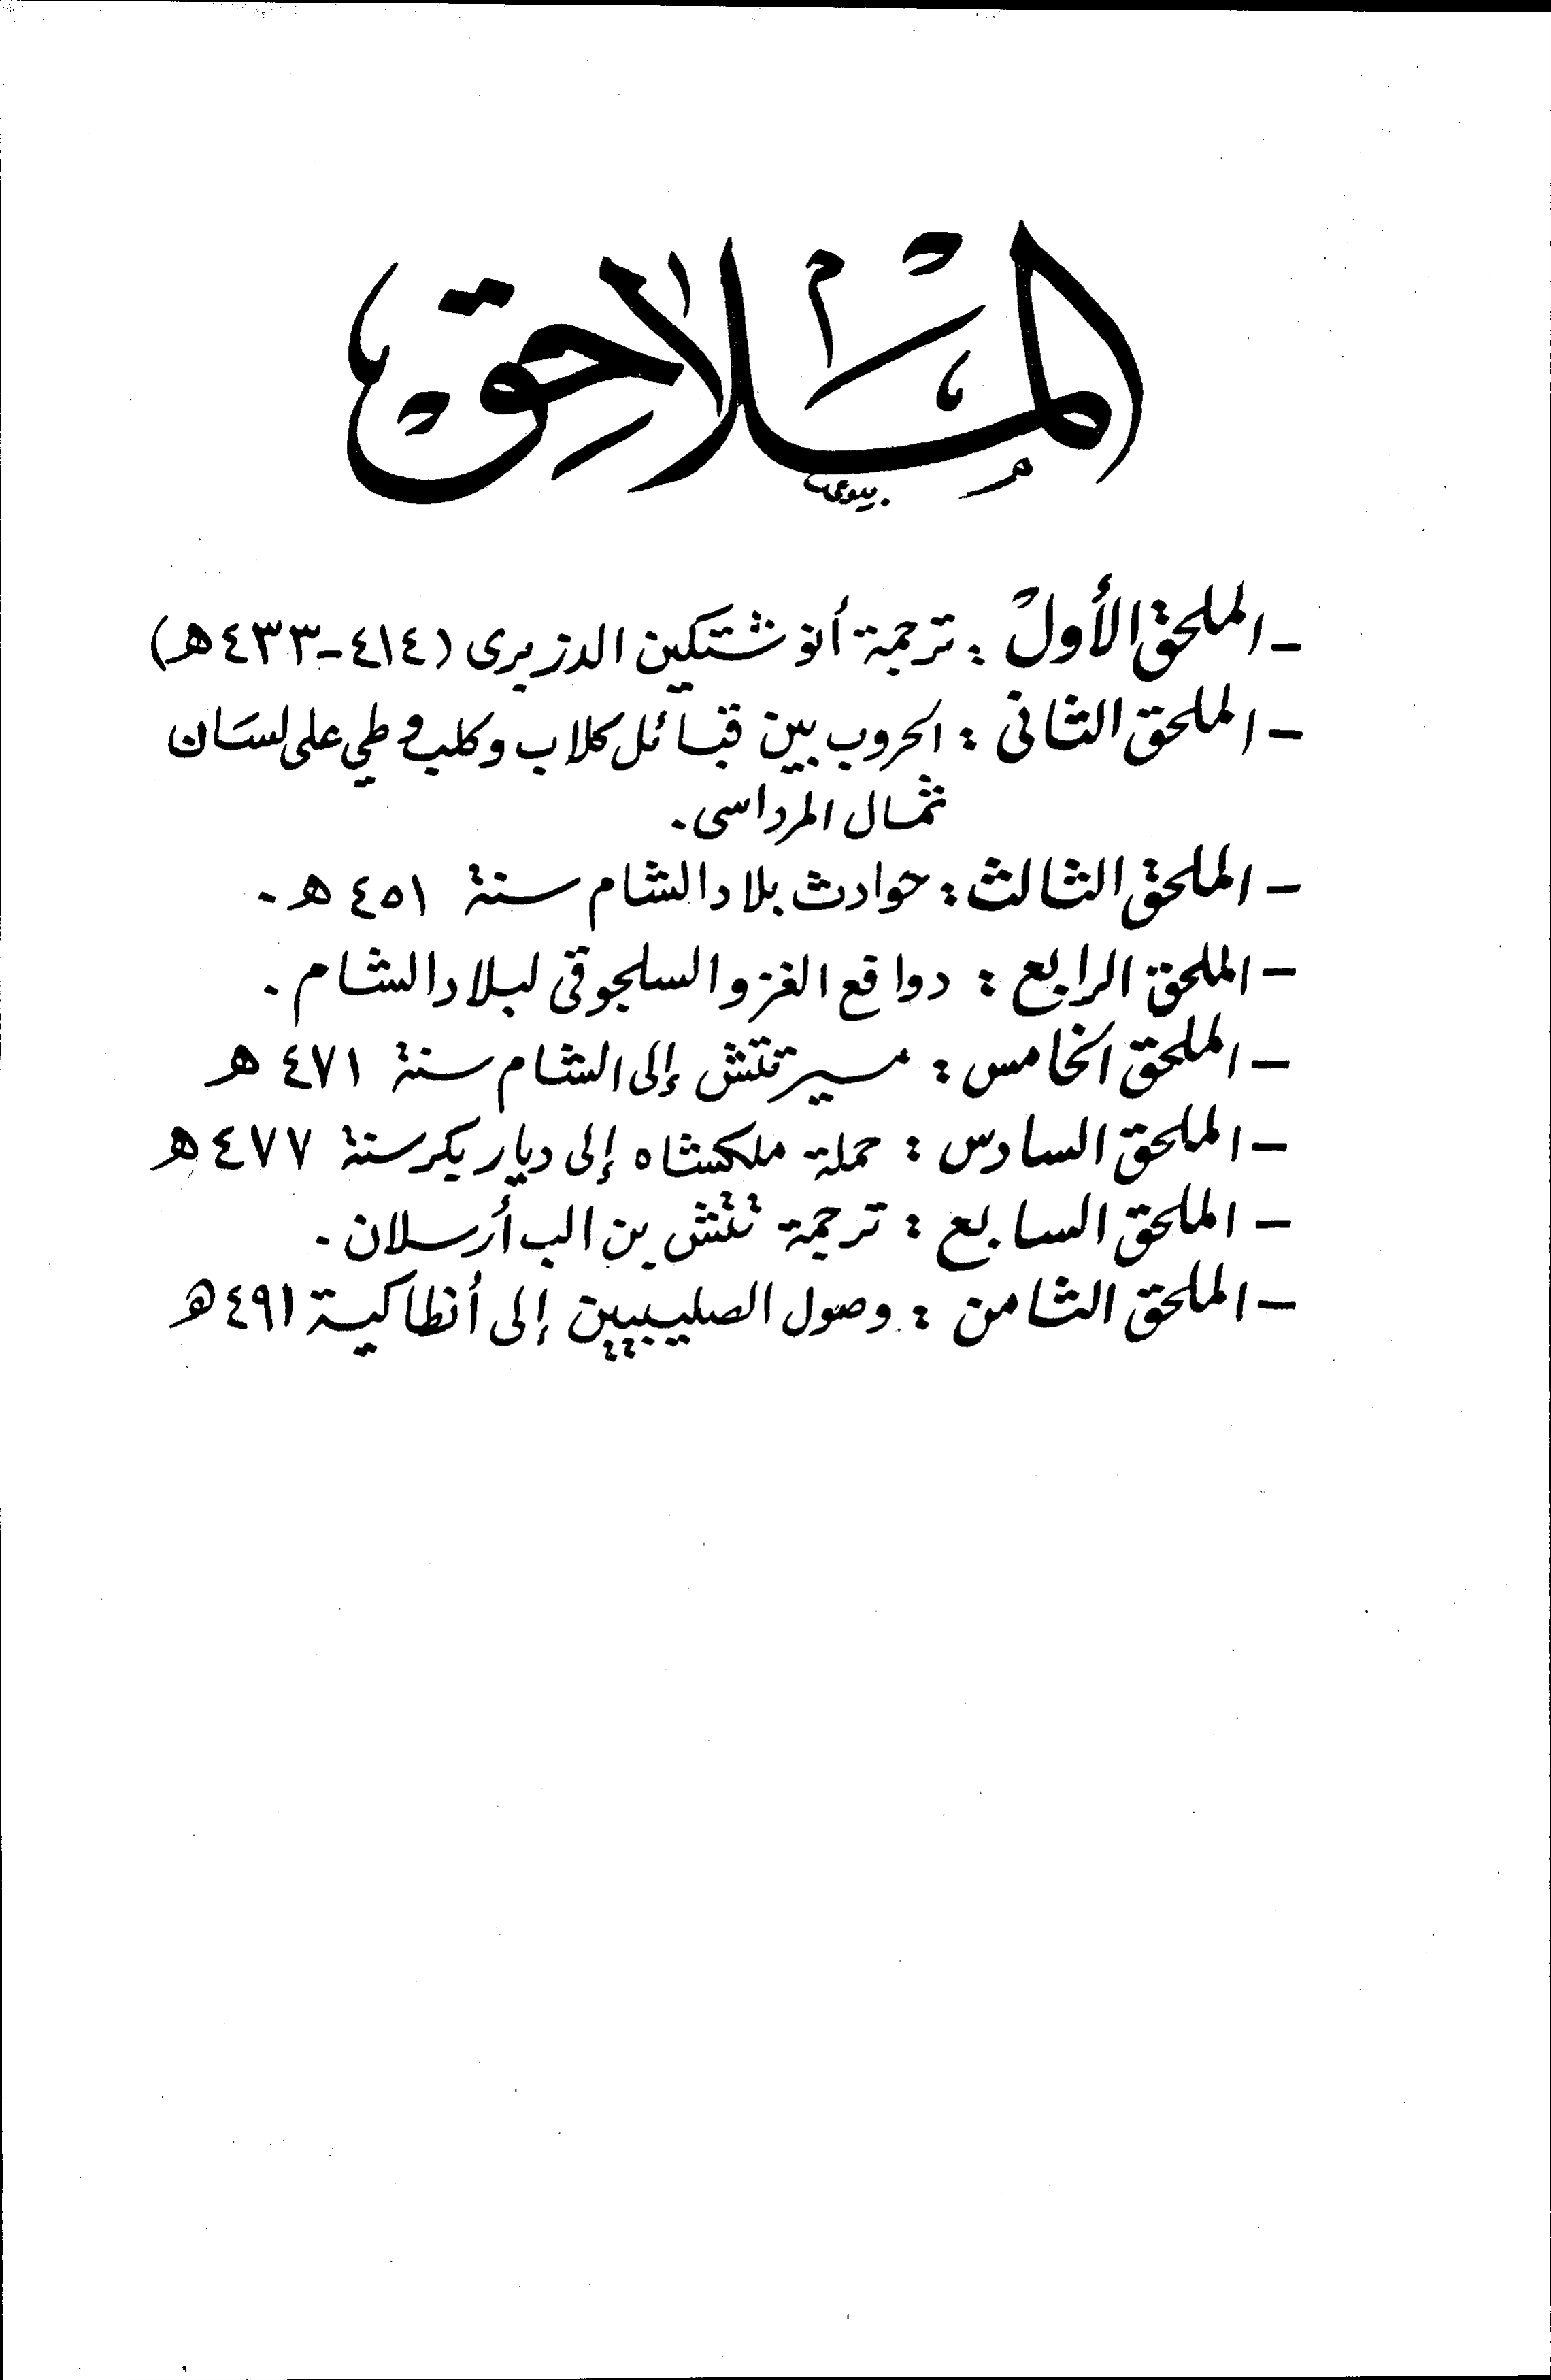 الملاحق
- الملحق الأول : ترجمة أنوشتكين الدزبرى (٤١٤-٤٣٣هـ)
- الملحق الثانى : الحروب بين قبائل كلاب وكلب وطي على لسان
ثمال المرداسى.
- الملحق الثالث : حوادث بلاد الشام سنة ٤٥١ هـ.
- الملحق الرابع : دوافع الغزو السلجوقى لبلاد الشام.
- الملحق الخامس : مسير تتش إلى الشام سنة ٤٧١ هـ
- الملحق السادس : حملة ملكشاه إلى ديار بكر سنة ٤٧٧ هـ
- الملحق السابع : ترجمة تتش بن الب أرسلان.
- الملحق الثامن : وصول الصليبيين إلى أنطاكية ٤٩١ هـ